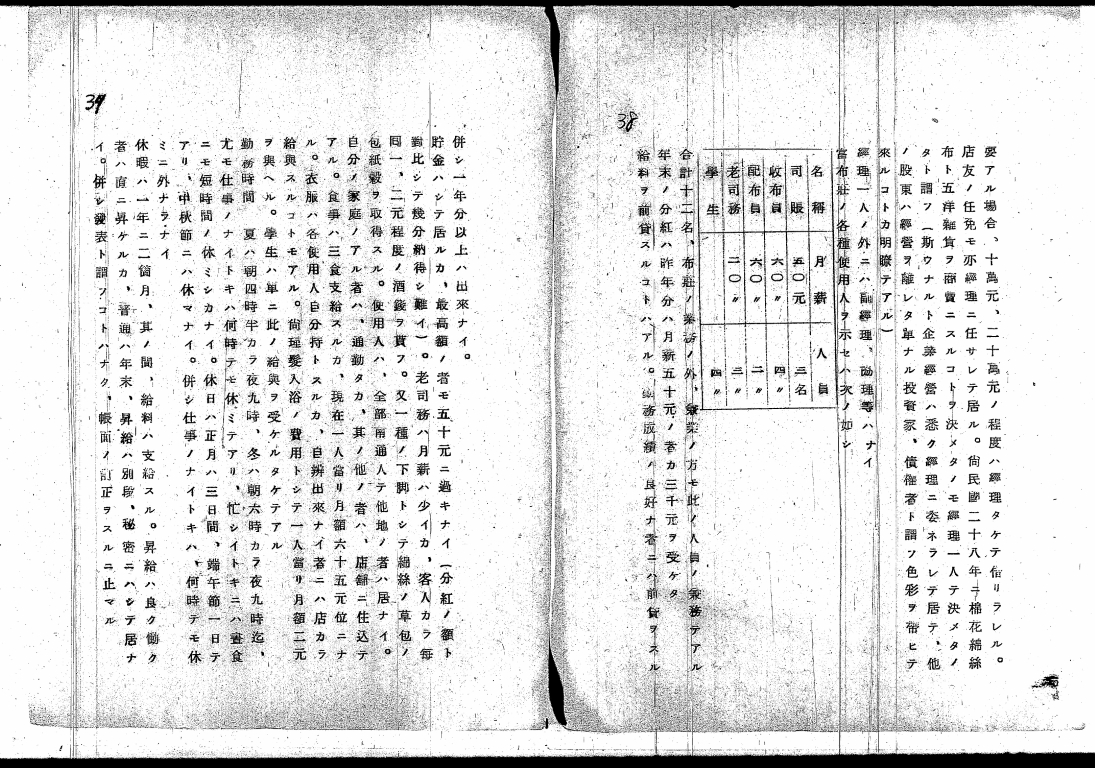 38
要アル場合、十萬元、二十萬元ノ程度ハ經理タケテ借リラレル。
店友ノ任免モ亦經理ニ任サレテ居ル。尙民國二十八年ニ棉花綿絲
布ト五洋雜貨ヲ商賣ニスルコトヲ決メタノモ經理一人テ決メタノ
タト謂フ（斯ウナルト企業經營ハ悉ク經理ニ委ネラレテ居テ、他
ノ股東ハ經營ヲ離レタ單ナル投資家、債權者ト謂フ色彩ヲ帶ヒテ
來ルコトカ明瞭テアル）
經理一人ノ外ニハ副經理、協理等ハナイ
當布莊ノ各種使用人ヲ示セハ次ノ如シ
名稱 月薪 人員
司賬 五〇元 三名
收布員 六〇〃 四〃
配布員 六〇〃 二〃
老司務 二〇〃 三〃
學生 四〃
合計十二名、布莊ノ業務ノ外、兼業ノ方モ此ノ人員ノ兼務テアル
年末ノ分紅ハ昨年分ハ月薪五十元ノ者カ三千元ヲ受ケタ
給料ヲ前貸スルコトハアル。勤務成績ノ良好ナ者ニハ前貸ヲスル
39
併シ一年分以上ハ出來ナイ。
貯金ハシテ居ルカ、最高額ノ者モ五十元ニ過キナイ（分紅ノ額ト
對比シテ幾分納得シ難イ）。老司務ハ月薪ハ少イカ、客人カラ每
回一、二元程度ノ酒錢ヲ貰フ。又一種ノ下脚トシテ綿絲ノ草包ノ
包紙殼ヲ取得スル。使用人ハ、全部南通人テ他地ノ者ハ居ナイ。
自分ノ家庭ノアル者ハ、通勤タカ、其ノ他ノ者ハ、店舖ニ住込テ
アル。食事ハ三食支給スルカ、現在一人當リ月額六十五元位ニナ
ル。衣服ハ各使用人自分持トスルカ、自辨出來ナイ者ニハ店カラ
給與スルコトモアル。尙理髮入浴ノ費用トシテ一人當リ月額二元
ヲ與ヘル。學生ハ單ニ此ノ給與ヲ受ケルタケテアル
勤務時間　夏ハ朝四時半カラ夜九時、冬ハ朝六時カラ夜九時迄、
尤モ仕事ノナイトキハ何時テモ休ミテアリ、忙シイトキニハ晝食
ニモ短時間ノ休ミシカナイ。休日ハ正月ハ三日間、端午節一日テ
アリ、中秋節ニハ休マナイ。併シ仕事ノナイトキハ、何時テモ休
ミニ外ナラナイ
休暇ハ一年ニ二箇月、其ノ間、給料ハ支給スル。昇給ハ良ク働ク
者ハ直ニ昇ケルカ、普通ハ年末、昇給ハ別段、秘密ニハシテ居ナ
イ。併シ發表ト謂フコトハナク、帳面ノ訂正ヲスルニ止マル